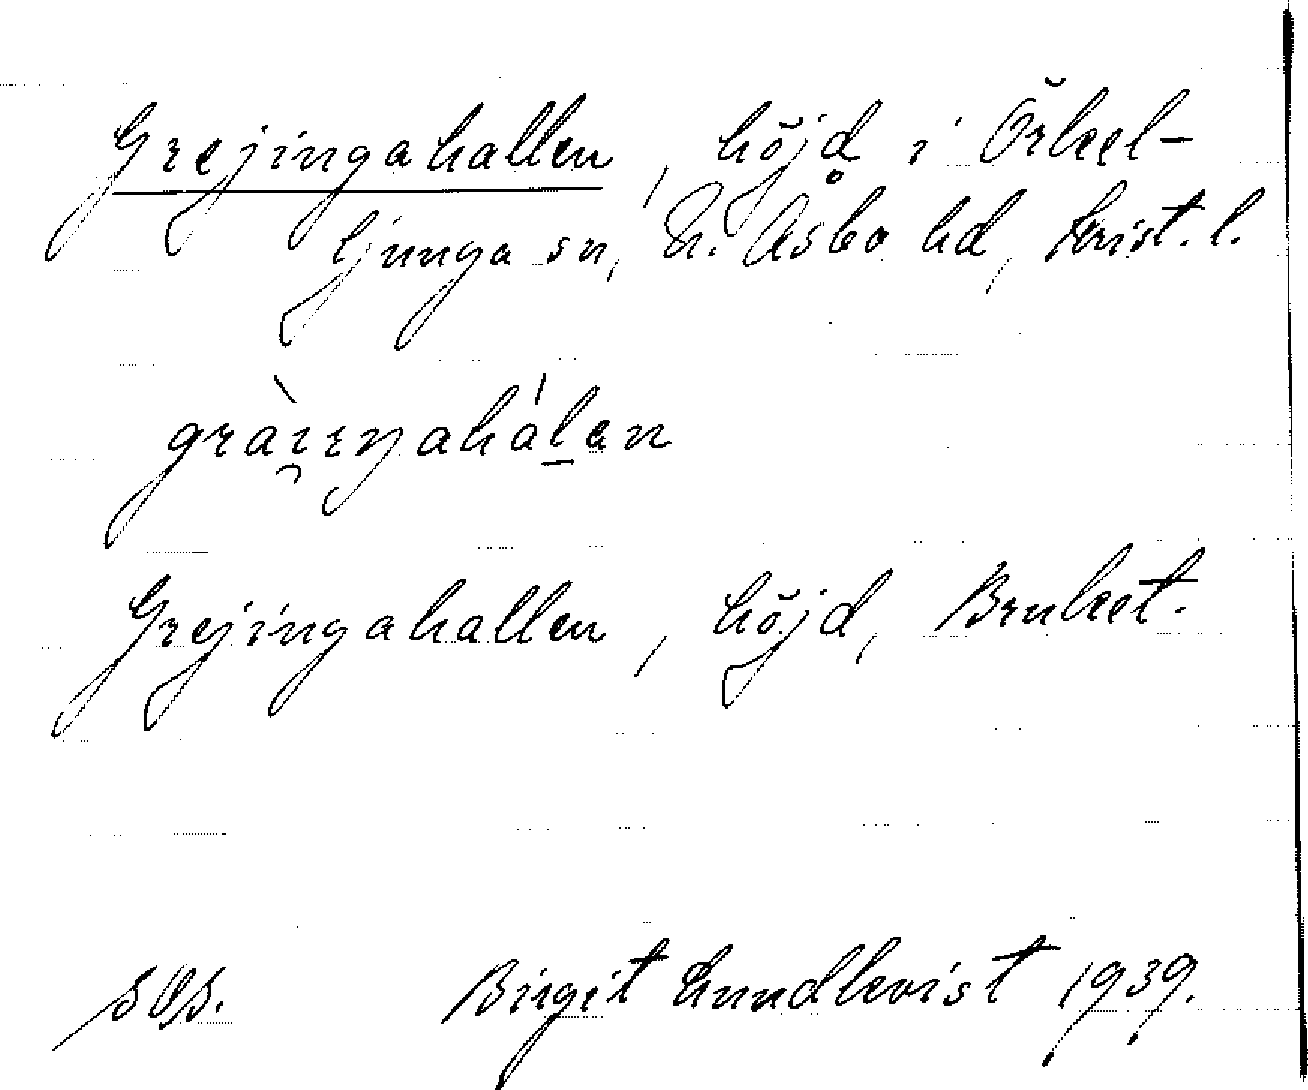 Grejingahallen, höjd i Örkel-
ljunga sn, N. Åsbo hd, Krist. l.
Grejingahallen, höjd, Bruket.
Birgit Lundkvist 1939.